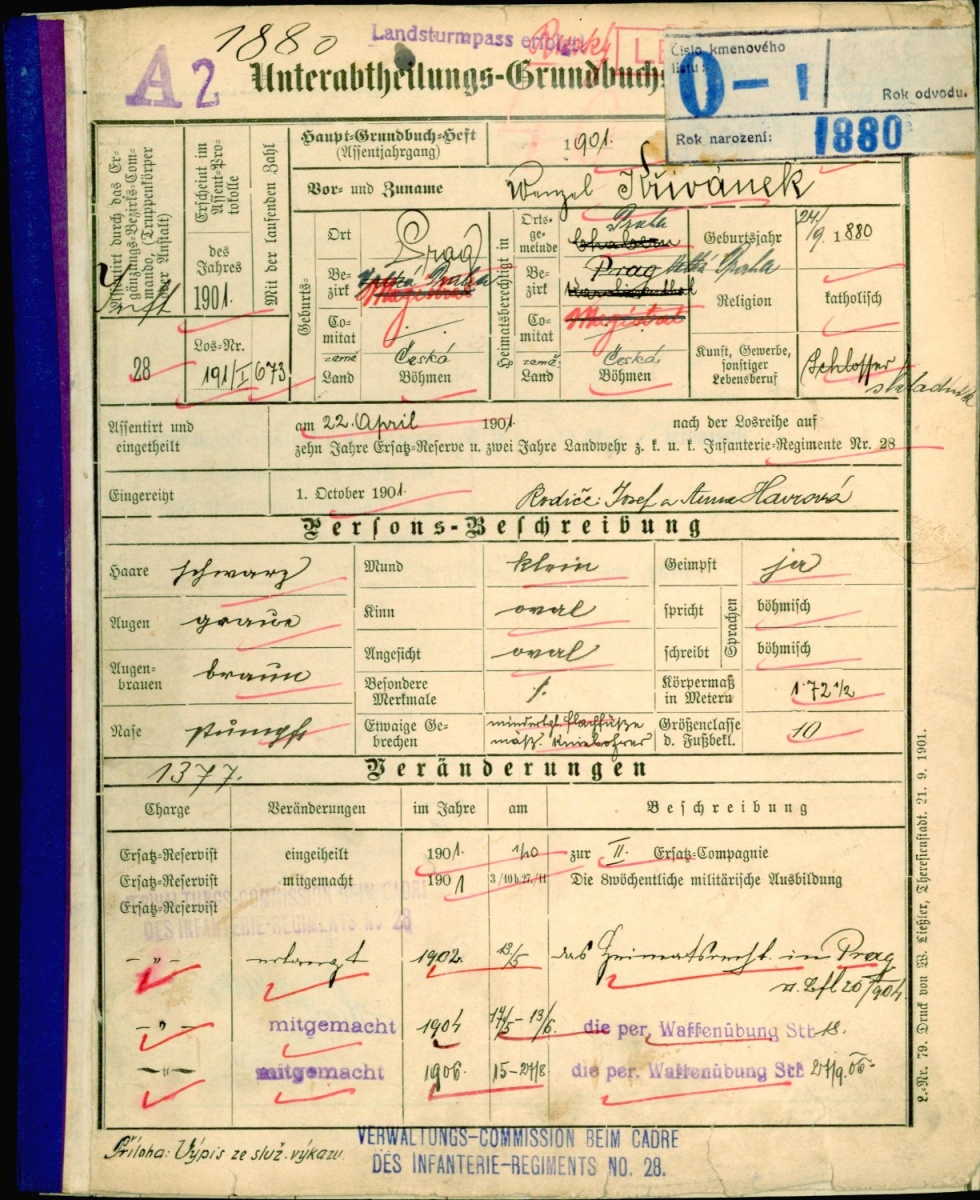 1880
Landsturmpass
A2
Unterabtheilungs-Grundbuchs
Číslo kmenového
listu:
0-1
Rok odvodu.
Rok narození: 1880
Assentirt durch das Er-
gänzungs-Bezirks-Com-
mando, (Truppenkörper
oder Anstalt)
28
Erscheint im
Assent-Pro-
tokolle
des
Jahres
1901.
Los-Nr.
191/I 673
Mit der laufenden Zahl
Haupt-Grundbuch-Heft
(Assentjahrgang)
1901.
Vor- und Zuname Wenzel Křivánek
Geburts-
Ort Prag
Be-
zirk Velká Praha
Magistrat
Co-
mitat
země
Land
Česká
Böhmen
Heimatsberechtigt in
Orts-
ge-
meinde
Praha
Be-
zirk
Prag Velká Praha
Karolinenthal
Co-
mitat
Magistrat
země
Land
Česká
Böhmen
Geburtsjahr 24/9. 1880
Religion katholisch
Kunst, Gewerbe,
sonstiger
Lebensberuf
Schlosser
skladník
Assentirt und
eingetheilt
am 22. April 1901 nach der Losreihe auf
zehn Jahre Ersatz-Reserve u. zwei Jahre Landwehr z. k. u. k. Infanterie-Regimente Nr. 28
Eingereiht 1. October 1901. Rodiče: Josef a Anna Havrová
Persons-Beschreibung
Haare schwarz
Augen graue
Augen-
brauen braun
Nase stumpf
Mund klein
Kinn oval
Angesicht oval
Besondere
Merkmale
Etwaige Ge-
brechen
mindergl. Flachfüße
mäß. Kniebohrer
Geimpft ja
spricht
schreibt
Sprachen
böhmisch
böhmisch
Körpermaß
in Metern 1·72 1/2
Größenclasse
d. Fußbekl. 10
1377.
Veränderungen
Charge Veränderungen im Jahre am Beschreibung
Ersatz-Reservist eingeiheilt 1901. 1/10 zur II. Ersatz-Compagnie
Ersatz-Reservist mitgemacht 1901 3/10 b. 27./11 Die 8wöchentliche militärische Ausbildung
Ersatz-Reservist
VERWALTUNGS-COMMISSION BEIM CADRE
DES INFANTERIE-REGIMENTS NO 28
-"- erlangt 1902 13/5 das Heimatsrecht in Prag
-"- mitgemacht 1904 17/5 - 13/6. die per. Waffenübung Stb 18.
-"- mitgemacht 1906. 15-27/8 die per. Waffenübung Stb 27/9. 06
Příloha: Výpis ze služ. výkazu
VERWALTUNGS-COMMISSION BEIM CADRE
DES INFANTERIE-REGIMENTS NO. 28.
L.-Nr. 79. Druck von W. Ließler, Theresienstadt. 21. 9. 1901.